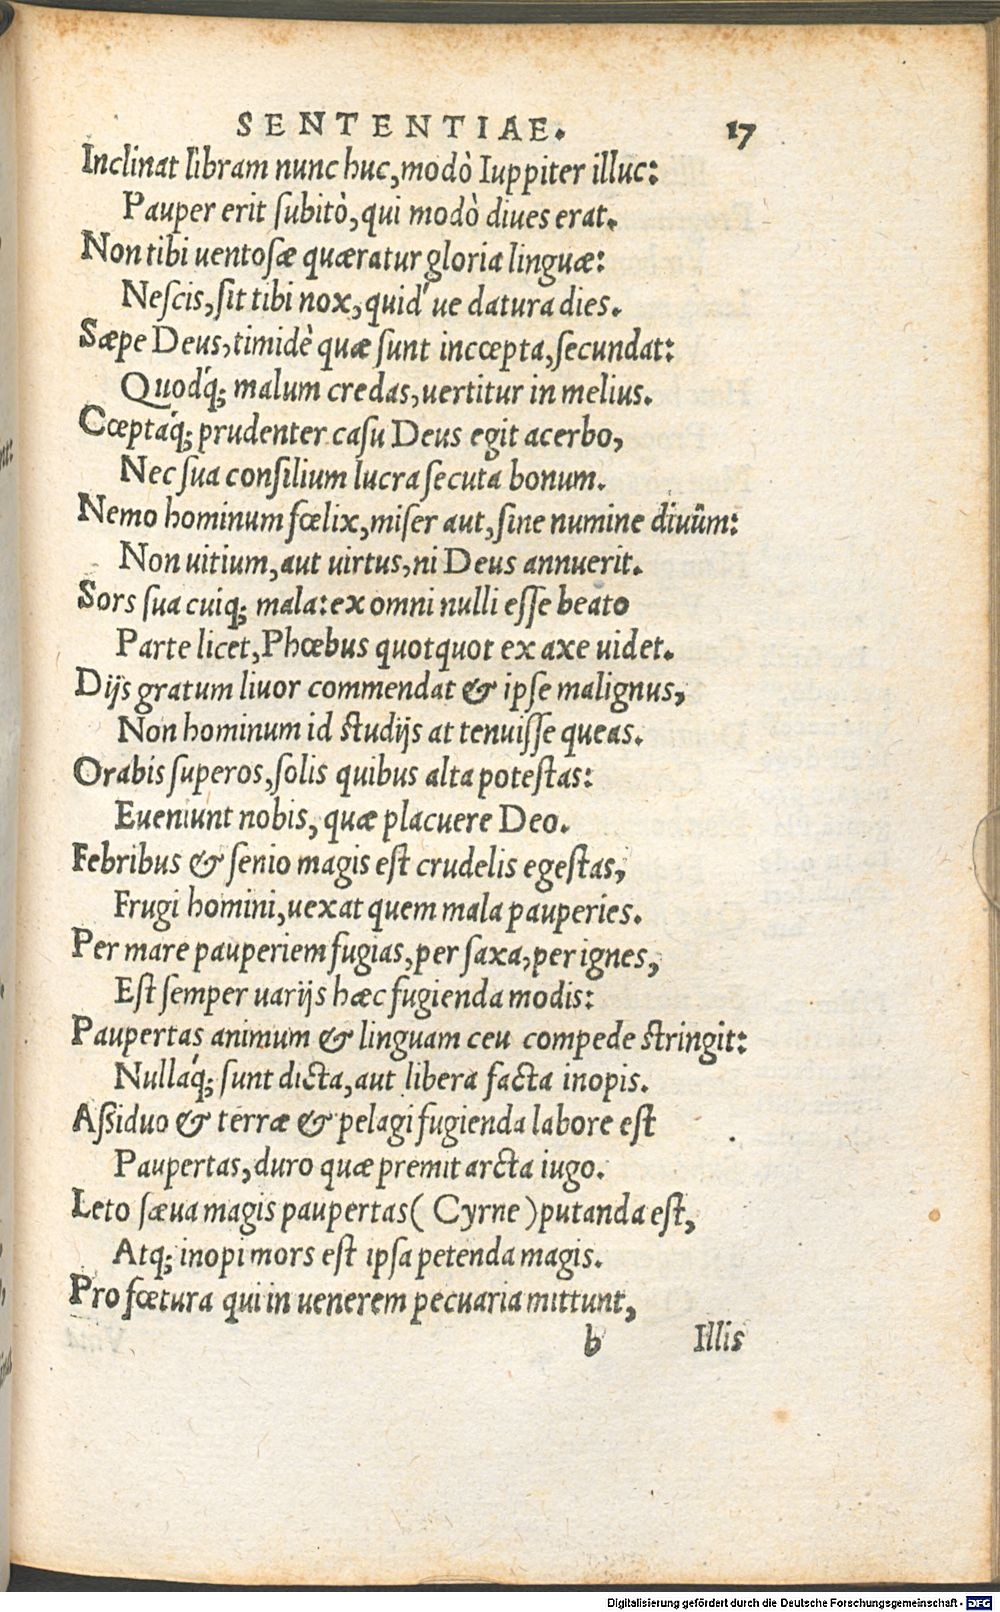 SENTENTIAE. 17
Inclinat libram nunc huc, modò Iuppiter illuc:
Pauper erit subitò, qui modò diues erat.
Non tibi uentosæ quæratur gloria linguæ:
Nescis, sit tibi nox, quid' ue datura dies.
Sæpe Deus, timidè quæ sunt incœpta, secundat:
Quodq́; malum credas, uertitur in melius.
Cœptaq́; prudenter casu Deus egit acerbo,
Nec sua consilium lucra secuta bonum.
Nemo hominum fœlix, miser aut, sine numine diuûm:
Non uitium, aut uirtus, ni Deus annuerit.
Sors sua cuiq; mala: ex omni nulli esse beato
Parte licet, Phœbus quotquot ex axe uidet.
Dijs gratum liuor commendat & ipse malignus,
Non hominum id studijs at tenuisse queas.
Orabis superos, solis quibus alta potestas:
Eueniunt nobis, quæ placuere Deo.
Febribus & senio magis est crudelis egestas,
Frugi homini, uexat quem mala pauperies.
Per mare pauperiem fugias, per saxa, per ignes,
Est semper uarijs hæc fugienda modis:
Paupertas animum & linguam ceu compede stringit:
Nullaq́; sunt dicta, aut libera facta inopis.
Assiduo & terræ & pelagi fugienda labore est
Paupertas, duro quæ premit arcta iugo.
Leto sæua magis paupertas ( Cyrne ) putanda est,
Atq; inopi mors est ipsa petenda magis.
Pro fœtura qui in uenerem pecuaria mittunt,
b Illis
Digitalisierung gefördert durch die Deutsche Forschungsgemeinschaft - DFG